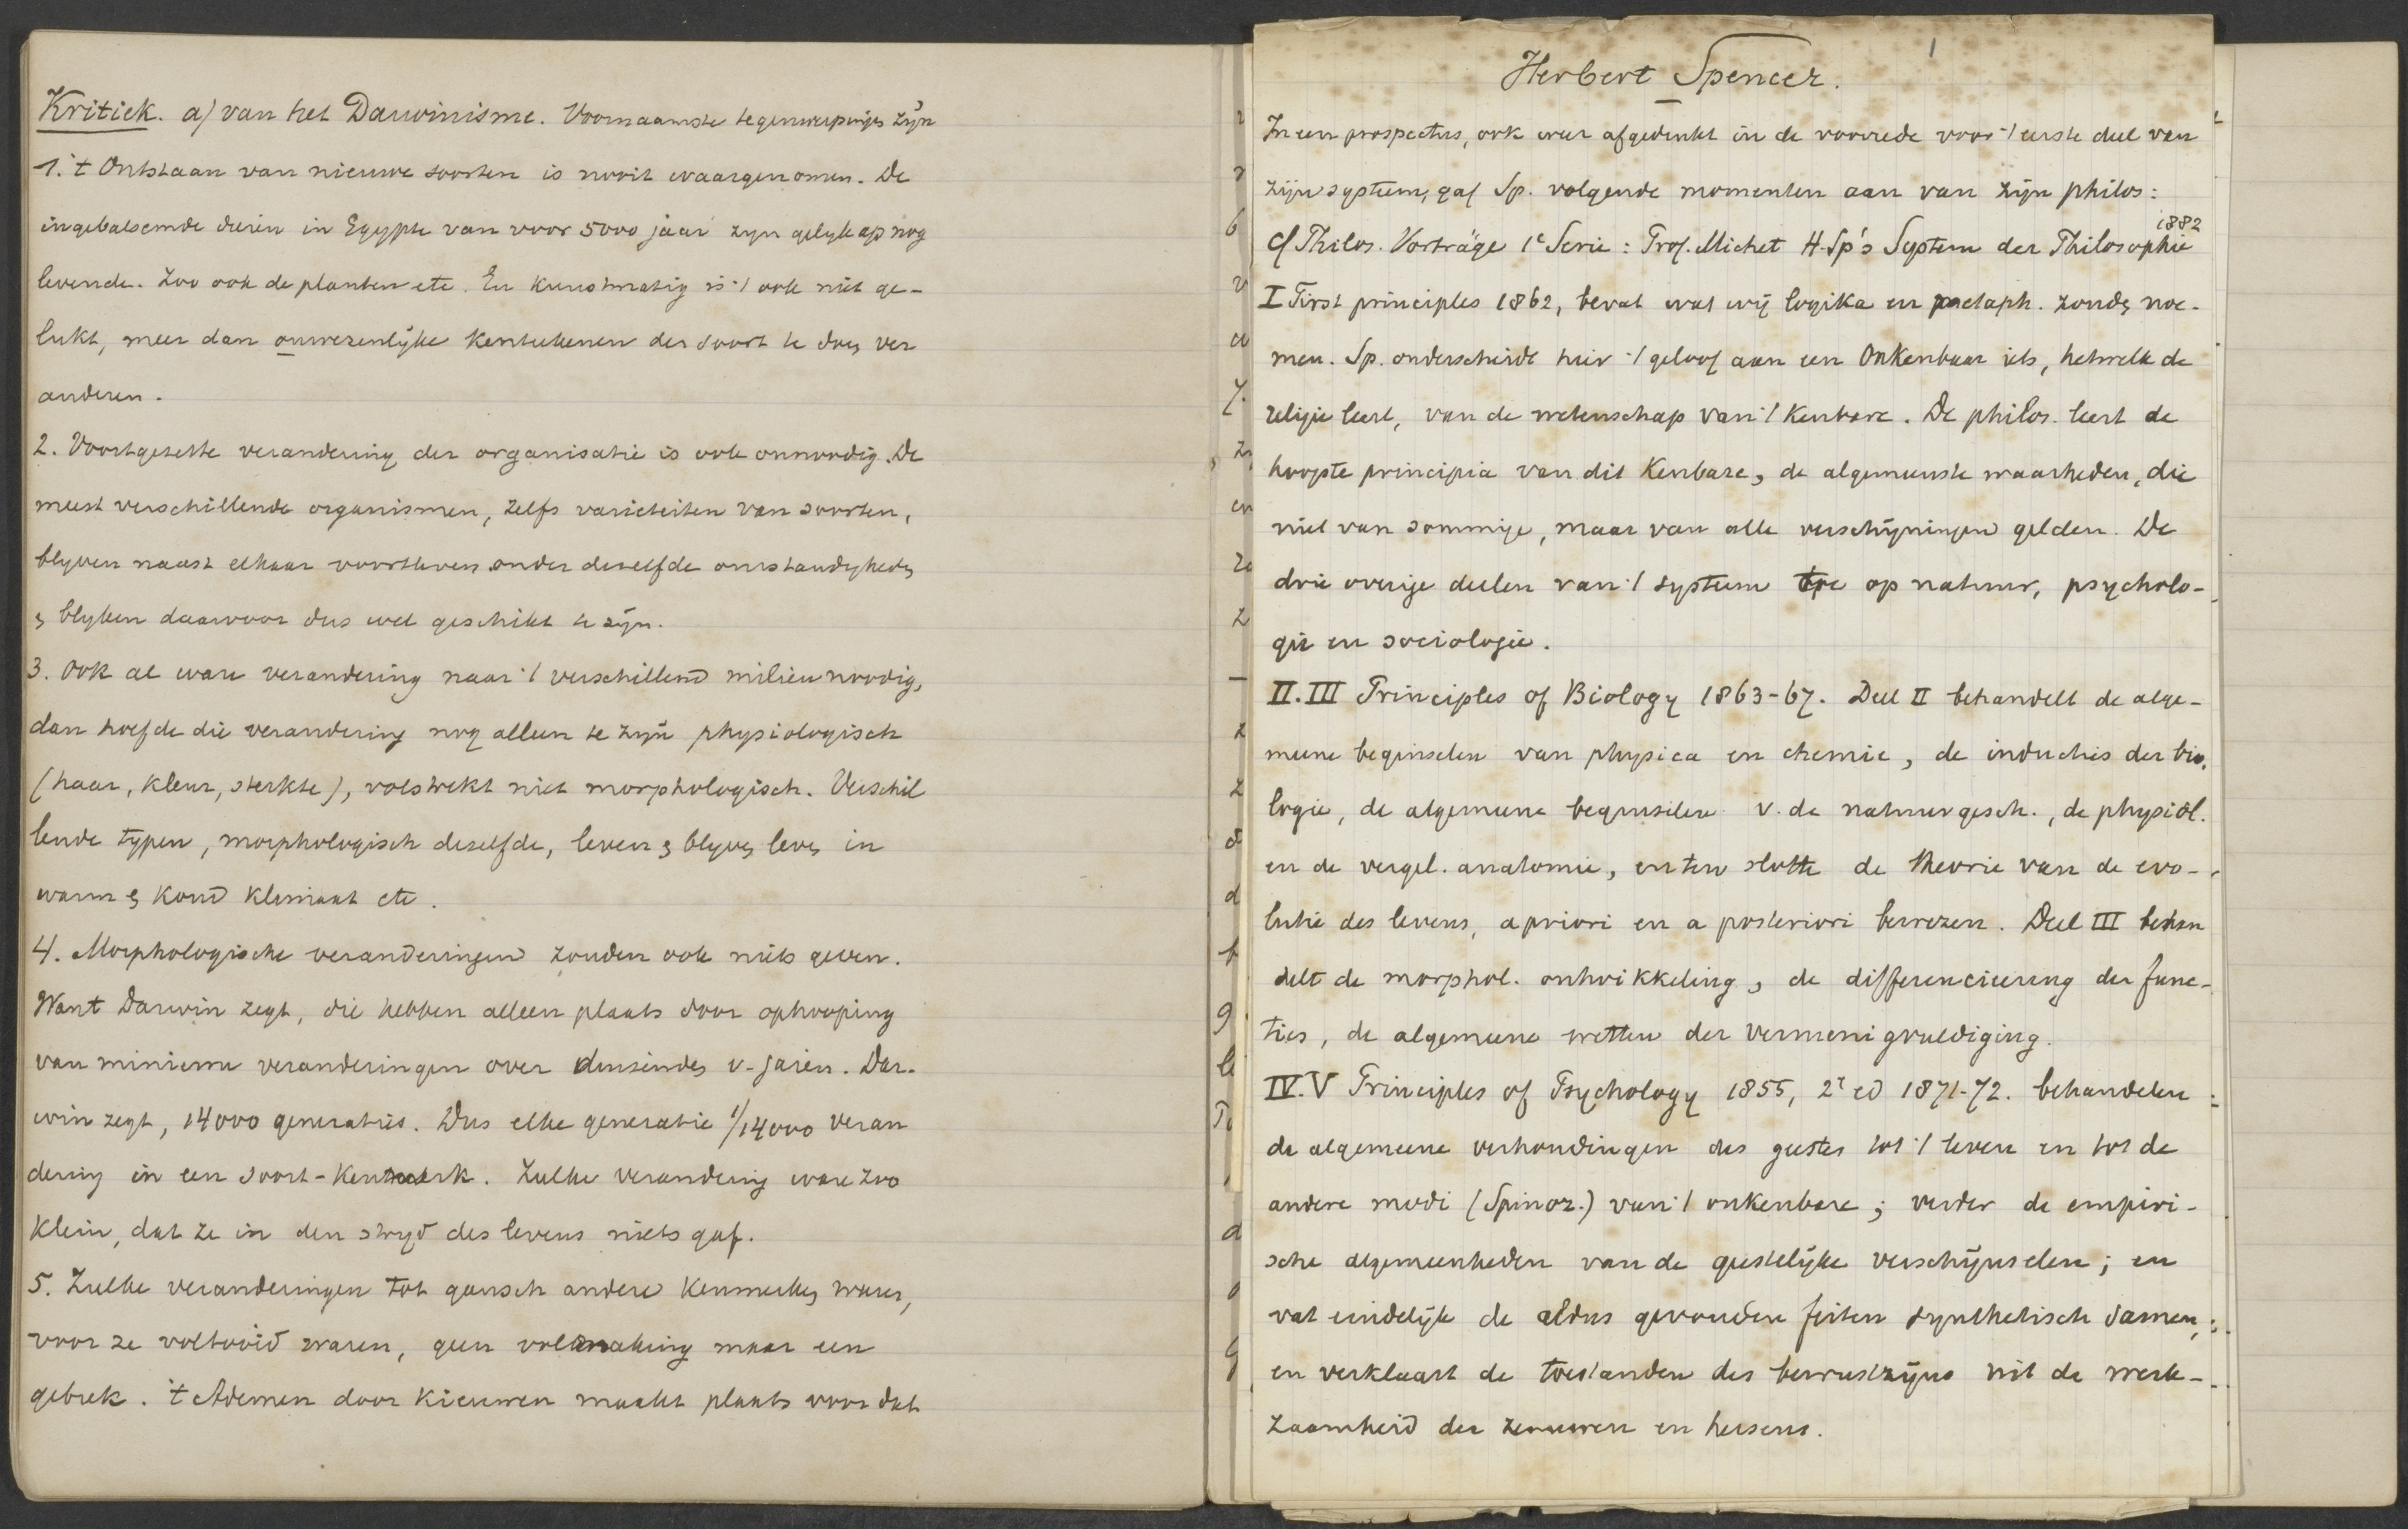 Kritiek. a) van het Darwinisme. Voornaamste tegenwerpingen zijn
1. 't Ontstaan van nieuwe soorten is nooit waargenomen. De
ingebalsemde dieren in Egypte van voor 5000 jaar zyn gelyk op nog
levende. Zoo ook de planten etc. En kunstmatig is 't ook niet ge-
lukt, meer dan onwezenlyke kenteekenen der soort te doen ver
anderen.
2. Voortgezette verandering der organisatie is ook onnoodig. De
meest verschillende organismen, zelfs varieteiten van soorten,
blyven naast elkaar voortleven onder dezelfde omstandigheden
en blyken daarvoor dus wel geschikt te zijn.
3. Ook al ware verandering naar 't verschillend milieu noodig,
dan hoefde die verandering nog alleen te zijn physiologisch
(haar, kleur, sterkte), volstrekt niet morphologisch. Verschil
lende typen, morphologisch dezelfde, leven en blyven leven in
warm en koud klimaat etc.
4. Morphologische veranderingen zouden ook niets geven.
Want Darwin zegt, die hebben alleen plaats door ophooping
van minieme veranderingen over duizenden v. jaren. Dar-
win zegt, 14000 generaties. Dus elke generatie 1/14000 veran
dering in een soort-kenmerk. Zulke verandering ware zoo
klein, dat ze in den stryd des levens niets gaf.
5. Zulke veranderingen tot gansch andere kenmerken waren,
voor ze voltooid waren, geen volmaking maar een
gebrek. 't Ademen door kieuwen maakt plaats voor dat
1
Herbert Spencer.
In een prospectus, ook weer afgedrukt in de voorrede voor 't eerste deel van
zijn systeem, gaf Sp. volgende momenten aan van zijn philos:
cf Philos. Vorträge 1e Serie: Prof. Michet H. Sp's System der Philosophie 1882
I First principles 1862, bevat wat wij logika en metaph. zouden noe-
men. Sp. onderscheidt hier 't geloof aan een Onkenbaar iets, hetwelk de
religie leert, van de wetenschap van 't Kenbare. De philos. leert de
hoogste principia van dit Kenbare, de algemeenste waarheden, die
niet van sommige, maar van alle verschijningen gelden. De
drie overige deelen van 't systeem op natuur, psycholo-
gie en sociologie.
II. III Principles of Biology 1863-67. Deel II behandelt de alge-
meene beginselen van physica en chemie, de inducties der bio-
logie, de algemeene beginselen v. de natuurgesch., de physiol.
en de vergel. anatomie, en ten slotte de theorie van de evo-
lutie des levens, a priori en a posteriori bewezen. Deel III behan
delt de morphol. ontwikkeling, de differencieering der func-
ties, de algemeene wetten der vermenigvuldiging.
IV. V Principles of Psychology 1855, 2e ed 1871-72. behandelen
de algemeene verhoudingen des geestes tot 't leven en tot de
andere modi (Spinoz.) van 't onkenbare; verder de empiri-
sche algemeenheden van de geestelijke verschijnselen; en
vat eindelijk de aldus gevonden feiten synthetisch samen,
en verklaart de toestanden des bewustzijns uit de werk-
zaamheid der zenuwen en hersens.